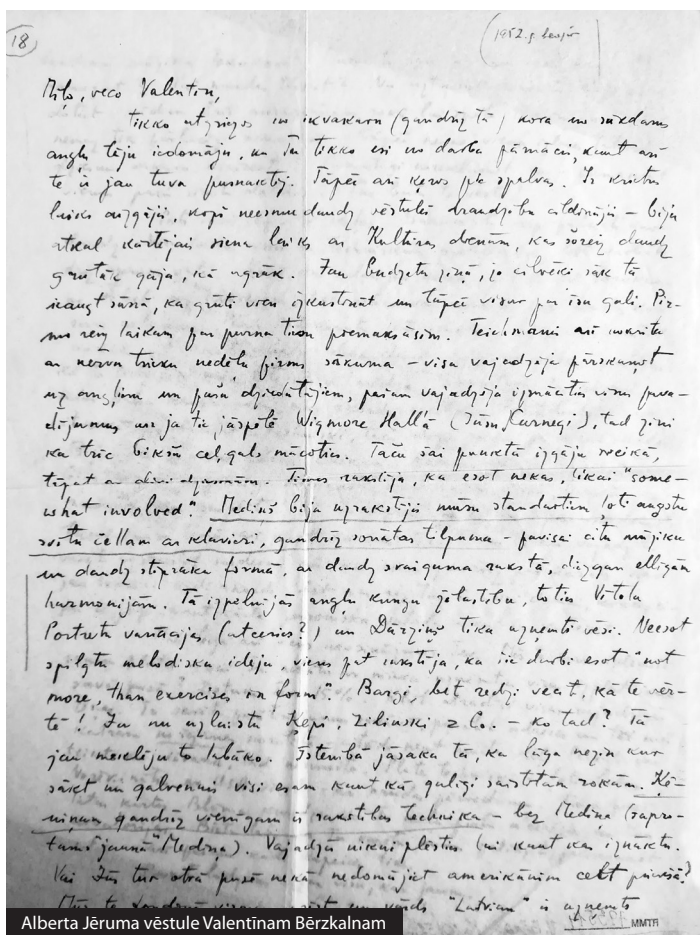 18
(1952.g.
Mīļo, veco Valentīn,
tikko atgriezos no (gandrīz tā) kora un sūkdams
angļu tēju iedomāju, ka Tu tikko esi no darba pārnācis, kaut arī
te ir jau tuvu pusnaktij. Tāpēc arī ķeros pie spalvas. Ir krietns
laiks aizgājis, kopš neesmu daudz vēstuļu draudzību cildinājis – bija
atkal kārtējais siena laiks ar Kultūras dienām, kas šoreiz daudz
grūtāk gāja, kā agrāk. Jau budžeta ziņā, jo cilvēki sāk tā
ieaugt sūnā, ka grūti vien izkustināt un tāpēc visur par īsu gali. Pir-
mo reiz laikam par purna tiesu piemaksāsim. Teichmanis arī nokrita
ar nervu trieku nedēļu pirms sākuma – visu vajadzēja pārskaņot
uz angļiem un pašu dziedātājiem, pašam vajadzēja izmācīties visus pava-
dījumus un ja tie jāspēlē Wigmore Hall'ā (Jūsu Carnegi), tad zini
ka trīc bikšu ceļgals mācoties. Taču šai punktā izgāju sveikā,
tāpat ar divi dziesmām. Times rakstīja, ka esot nekas, tikai "some-
what involved". Mediņš bija uzrakstījis mūsu standartiem ļoti augstu
svītu čellam ar klavieri, gandrīz sonātas tilpuma – pavisai citu mūziku
un daudz stiprāku formā, ar daudz svaiguma rakstā, diezgan elligām
harmonijām. Tā izpelnījās angļu kungu žēlastību, toties Vītola
Portreta variācijas (atceries?) un Dārziņš tika uzņemti vēsi. Neesot
spilgtu melodisku ideju, viens pat rakstīja, ka šie darbi esot "not
more, than exercises in form". Bargi, bet redzi vecīt, kā te vēr-
tē! Ja nu uzlaistu Ķepi, Zilinski & Co. – ko tad? Tā
jau meklēju to labāko. Īstenībā jāsaka tā, ka lāga nezin kur
sākt un galvenais visi esam kaut kā guļīgi saistītām rokām. Ķē-
niņam gandrīz vienīgam ir rakstības technika – bez Mediņa (sapro-
tams "jaunā" Mediņa). Vajadzētu nikni plēsties lai kaut kas iznāktu.
Vai Jūs tur otrā pusē nekā nedomājiet amerikāņiem celt priekšā?
Mūs te Londonā vārds "Latvian" ir uzņemts
Alberta Jēruma vēstule Valentīnam Bērzkalnam
MMTR